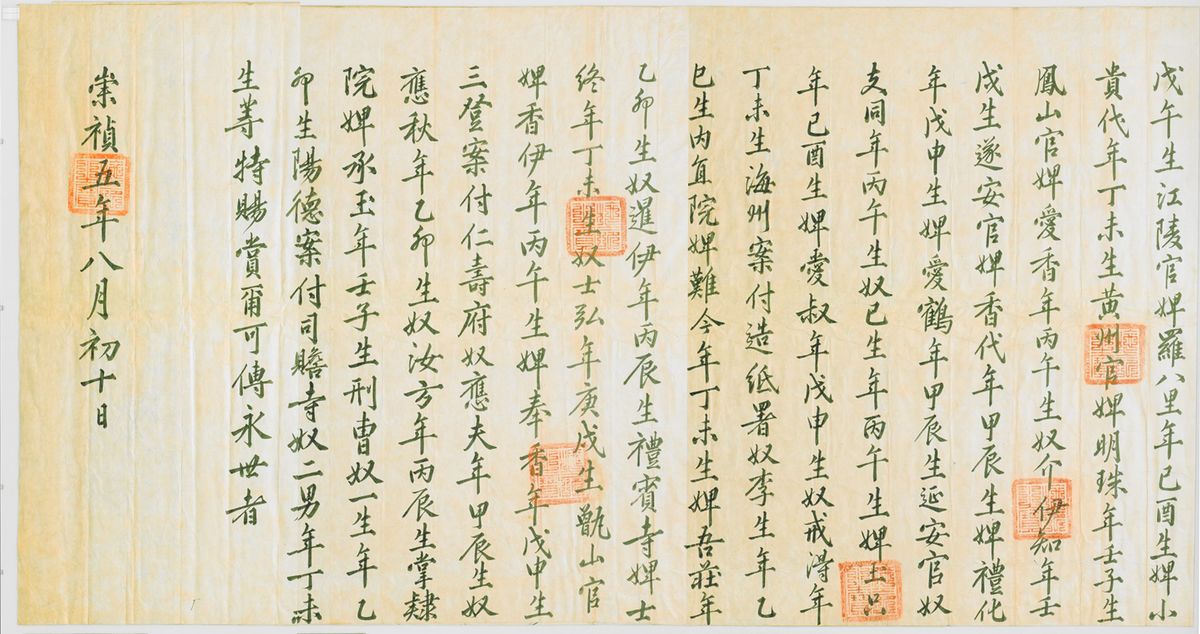 戊午生江陵官婢羅八里年己酉生婢小
貴代年丁未生黃州官婢明珠年壬子生
鳳山官婢愛香年丙午生奴介伊知年壬
戌生遂安官婢香代年甲辰生婢禮化
年戊申生婢愛鶴年甲辰生延安官奴
支同年丙午生奴已生年丙午生婢玉只
年己酉生婢愛叔年戊申生奴戒淂年
丁未生海州案付造紙署奴李生年乙
巳生內直院婢難今年丁未生婢吾莊年
乙卯生奴暹伊年丙辰生禮賓寺婢士
終年丁未生奴士弘年庚戌生甑山官
婢香伊年丙午生婢奉香年戊申生
三登案付仁壽府奴應夫年甲辰生奴
應秋年乙卯生奴汝方年丙辰生掌隸
院婢承玉年壬子生刑曹奴一生年乙
卯生陽德案付司贍寺奴二男年丁未
生等特賜賞爾可傳永世者
崇禎五年八月初十日